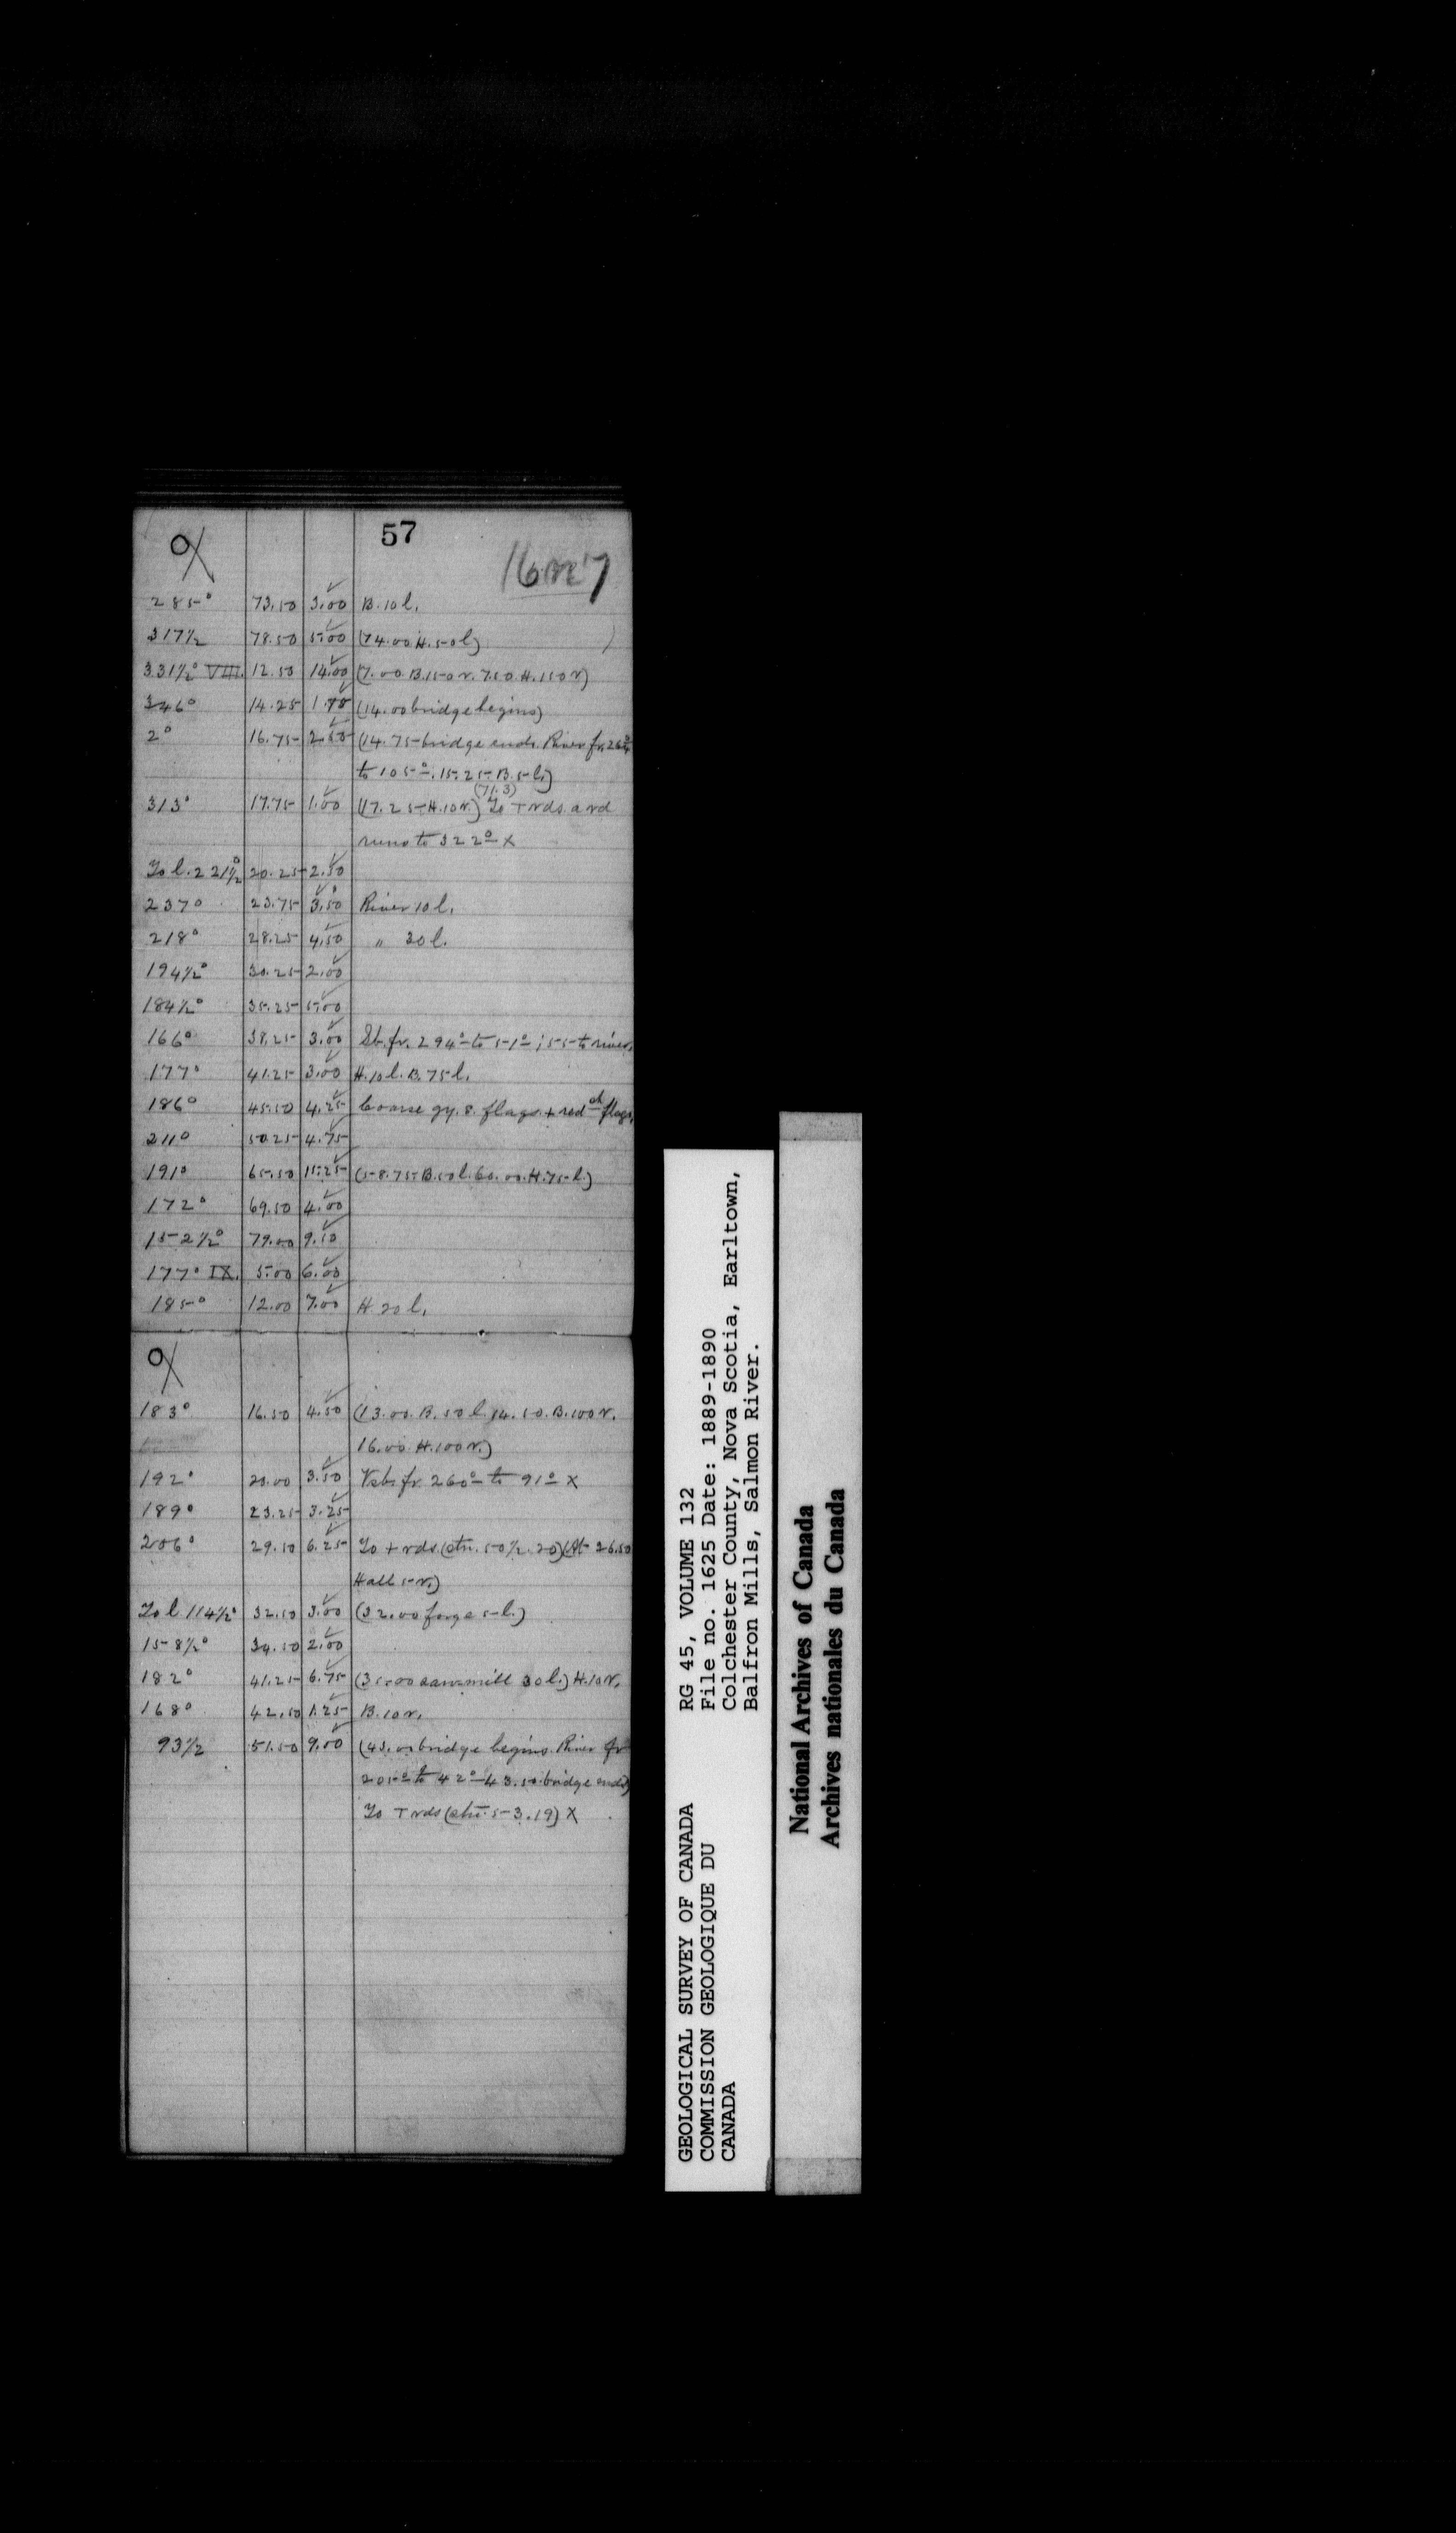 57
16 or 7
285° 73.50 3.00 B.10 l.
317½ 78.50 5.00 (74.00 H.50 l)
331½° VIII. 12.50 14.00 (7.00 B.150 r. 7.50 H.150 r)
346° 14.25 1.75 (14.00 bridge begins)
2° 16.75 2.50 (14.75 bridge ends. River fr.
to 105°. 15.25 B.5 l.)
(71.3)
313° 17.75 1.00 (17.25 H.10 r.) To T rds. a rd
runs to 322° X
To l. 221½° 20.25 2.50
237° 23.75 3.50 River 10 l.
218° 28.25 4.50 " 30 l.
194½° 30.25 2.00
184½° 35.25 5.00
166° 38.25 3.00 Sb. fr. 294° to 51° ; 55 to river.
177° 41.25 3.00 H.10 l. B.75 l.
186° 45.50 4.25 Coarse gy. s. flags + red sh flags.
211° 50.25 4.75
191° 65.50 15.25 (58.75 B.50 l. 60.00 H.75 l.)
172° 69.50 4.00
152½° 79.00 9.50
177° IX. 5.00 6.00
185° 12.00 7.00 H 20 l.
183° 16.50 4.50 (13.00 B.50 l. 14.50 B.100 r.
16.00 H.100 r.)
192° 20.00 3.50 Vsb. fr. 260° to 91° X
189° 23.25 3.25
206° 29.50 6.25 To + rds. (stn. 50½.20) (At 26.50
Hall 5 r.)
To l. 114½° 32.50 3.00 (32.00 forge 5 l.)
158½° 34.50 2.00
182° 41.25 6.75 (35.00 sawmill 30 l.) H.10 r.
168° 42.50 1.25 B.10 r.
93½ 51.50 9.00 (43.00 bridge begins. River fr
205° to 42° 43.50 bridge ends)
To T rds (stn. 53.19) X
GEOLOGICAL SURVEY OF CANADA RG 45, VOLUME 132
COMMISSION GEOLOGIQUE DU File no. 1625 Date: 1889-1890
CANADA Colchester County, Nova Scotia, Earltown,
Balfron Mills, Salmon River.
National Archives of Canada
Archives nationales du Canada